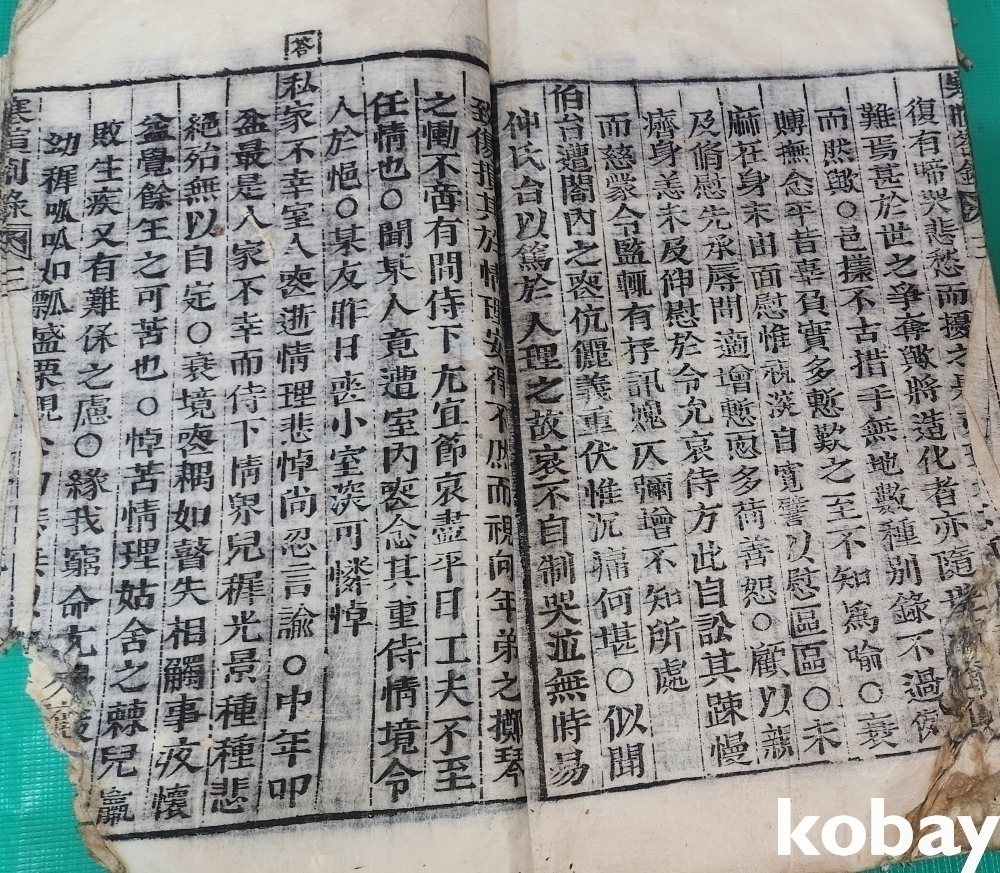 復有啼哭悲愁而擾之是
難焉甚於世之爭奪歟將造化者亦隨
而然歟○邑㨾不古措手無地數種別錄不過
賻撫念平昔辜負實多慙歎之至不知爲喻○衰
麻在身未由面慰惟祝深自寬譬以慰區區○未
及脩慰先承辱問適增慙恧多荷善恕○顧以親
癠身恙未及伸慰於令允哀侍方此自訟其踈慢
而慈蒙令監輒有抒訊媿仄彌增不知所處
伯台遭閤內之喪伉儷義重伏惟沉痛何堪○似聞
仲氏台以篤於人理之故哀不自制哭泣無時易
致傷損其於情理安得不然而視向年弟之擲琴
之慟不啻有間侍下尤宜節哀盡平日工夫不至
任情也○聞某人竟遭室內喪念其重侍情境令
人於悒○某友昨日喪小室深可憐悼
答
私家不幸室人喪逝情理悲悼尚忍言諭○中年叩
盆最是人家不幸而侍下情界兒穉光景種種悲
絕殆無以自定○衰境喪耦如瞽失相觸事疚懷
益覺餘生之可苦也○悼苦情理姑舍之棘兒羸
敗生疾又有難保之慮○緣我窮命尤
幼穉呱呱如瓢盛栗視
寒暄劄錄
kobay